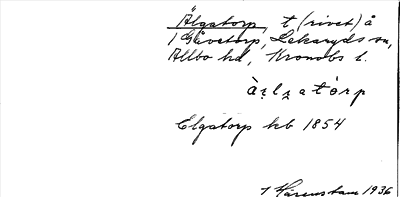 Älgatorp, t (rivet) å
1 Gåvetorp, Lekaryds sn,
Allbo hd, Kronobs l.
àʒlʒatórp
Elgatorp kb 1854
Härenstam 1936